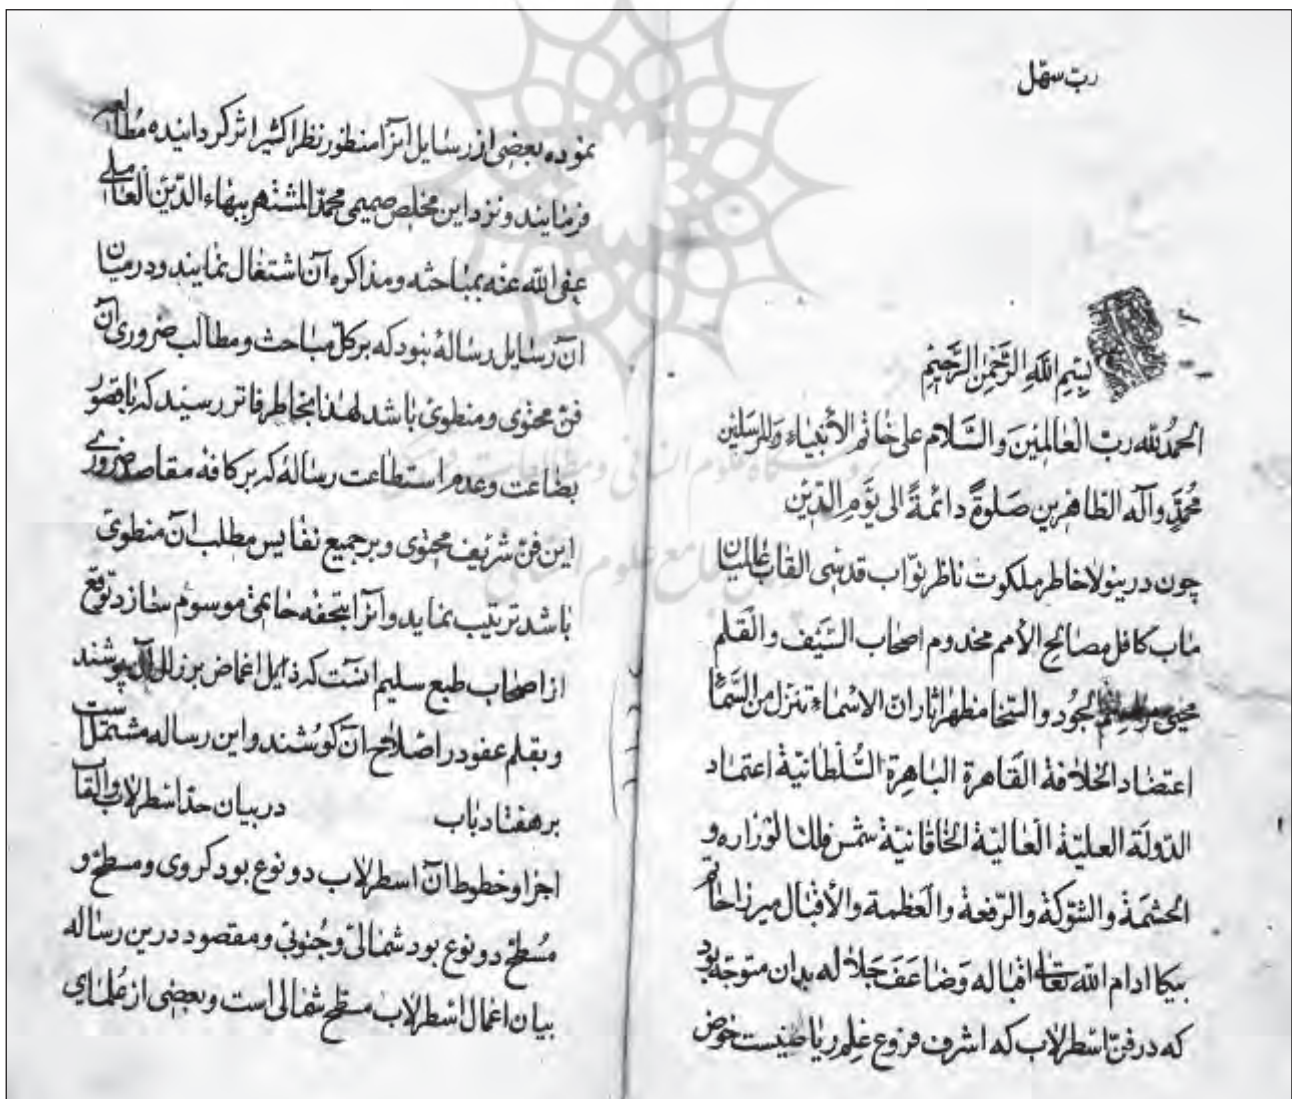 ربّ سهّل
بِسْمِ اللهِ الرَّحْمٰنِ الرَّحِيْمِ
الحمد لله ربّ العالمين والسّلام على خاتم الأنبياء والمرسلين
محمّدٍ وآله الطّاهرين صلوةً دائمةً الى يوم الدّين
چون درینولا خاطر ملکوت ناظر نوّاب قدسی القاب عالمیان
ماب کافل مصالح الأمم مخدوم اصحاب السّیف والقلم
محیی مراسم الجود والسّخا مظهر اثار انّ الاسماء تنزل من السّماء
اعتضاد الخلافة القاهرة الباهرة السّلطانیّة اعتماد
الدّولة العلیّة العالیة الخاقانیّة شمس فلک الوزاره و
الحشمة والشّوکة والرّفعة والعظمة والأقبال میرزا حاتم
بیکا ادام الله تعالی اقباله وضاعف جلاله بدان متوجّه بود
که در فنّ اسطرلاب که اشرف فروع علم ریاضیست خوض
نموده بعضی از رسایل انرا منظور نظر اکثیر اثر کردانیده مطالعه
فرمایند و نزد این مخلص صمیمی محمّد المشتهر ببهاء الدّین العاملی
عفی الله عنه بمباحثه و مذاکره آن اشتغال نمایند و در میان
ان رسایل رسالهٔ نبود که بر کلّ مباحث و مطالب ضروری آن
فنّ محتوی و منطوی باشد لهذا بخاطر فاتر رسید که با قصور
بضاعت و عدم استطاعت رسالهٔ که بر کافه مقاصد ضروری
این فنّ شریف محتوی و بر جمیع نفایس مطلب آن منطوی
باشد ترتیب نماید و انرا بتحفه حاتمی موسوم سازد توقّع
از اصحاب طبع سلیم انست که ذیل اغماض بر زلل آن پوشند
و بقلم عفو در اصلاح آن کوشند و این رساله مشتمل است
بر هفتاد باب در بیان حدّ اسطرلاب و القاب
اجزا و خطوط آن اسطرلاب دو نوع بود کروی و مسطّح و
مسطّح دو نوع بود شمالیّ و جنوبیّ و مقصود درین رساله
بیان اعمال اسطرلاب مسطّح شمالی است و بعضی از علمای
پژوهشگاه علوم انسانی و مطالعات فرهنگی
جامع علوم انسانی